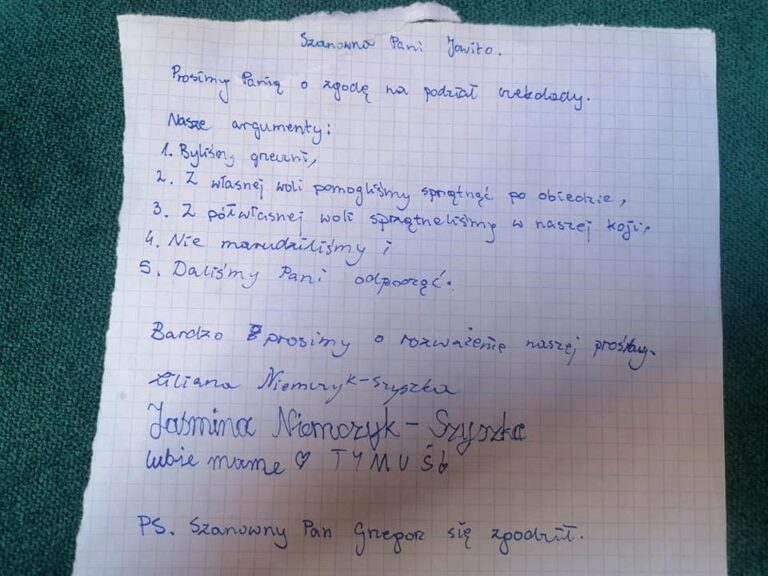 Szanowna Pani Jowito.
Prosimy Panią o zgodę na podział czekolady.
Nasze argumenty:
1. Byliśmy grzeczni,
2. Z własnej woli pomogliśmy sprzątnąć po obiedzie,
3. Z półwłasnej woli sprzątneliśmy w naszej koji,
4. Nie marudziliśmy i
5. Daliśmy Pani odpocząć.
Bardzo prosimy o rozważenie naszej prośby.
Liliana Niemczyk-Szyszka
Jasmina Niemczyk-Szyszka
lubie mame ♡ TYMUŚ
PS. Szanowny Pan Grzegor się zgodził.